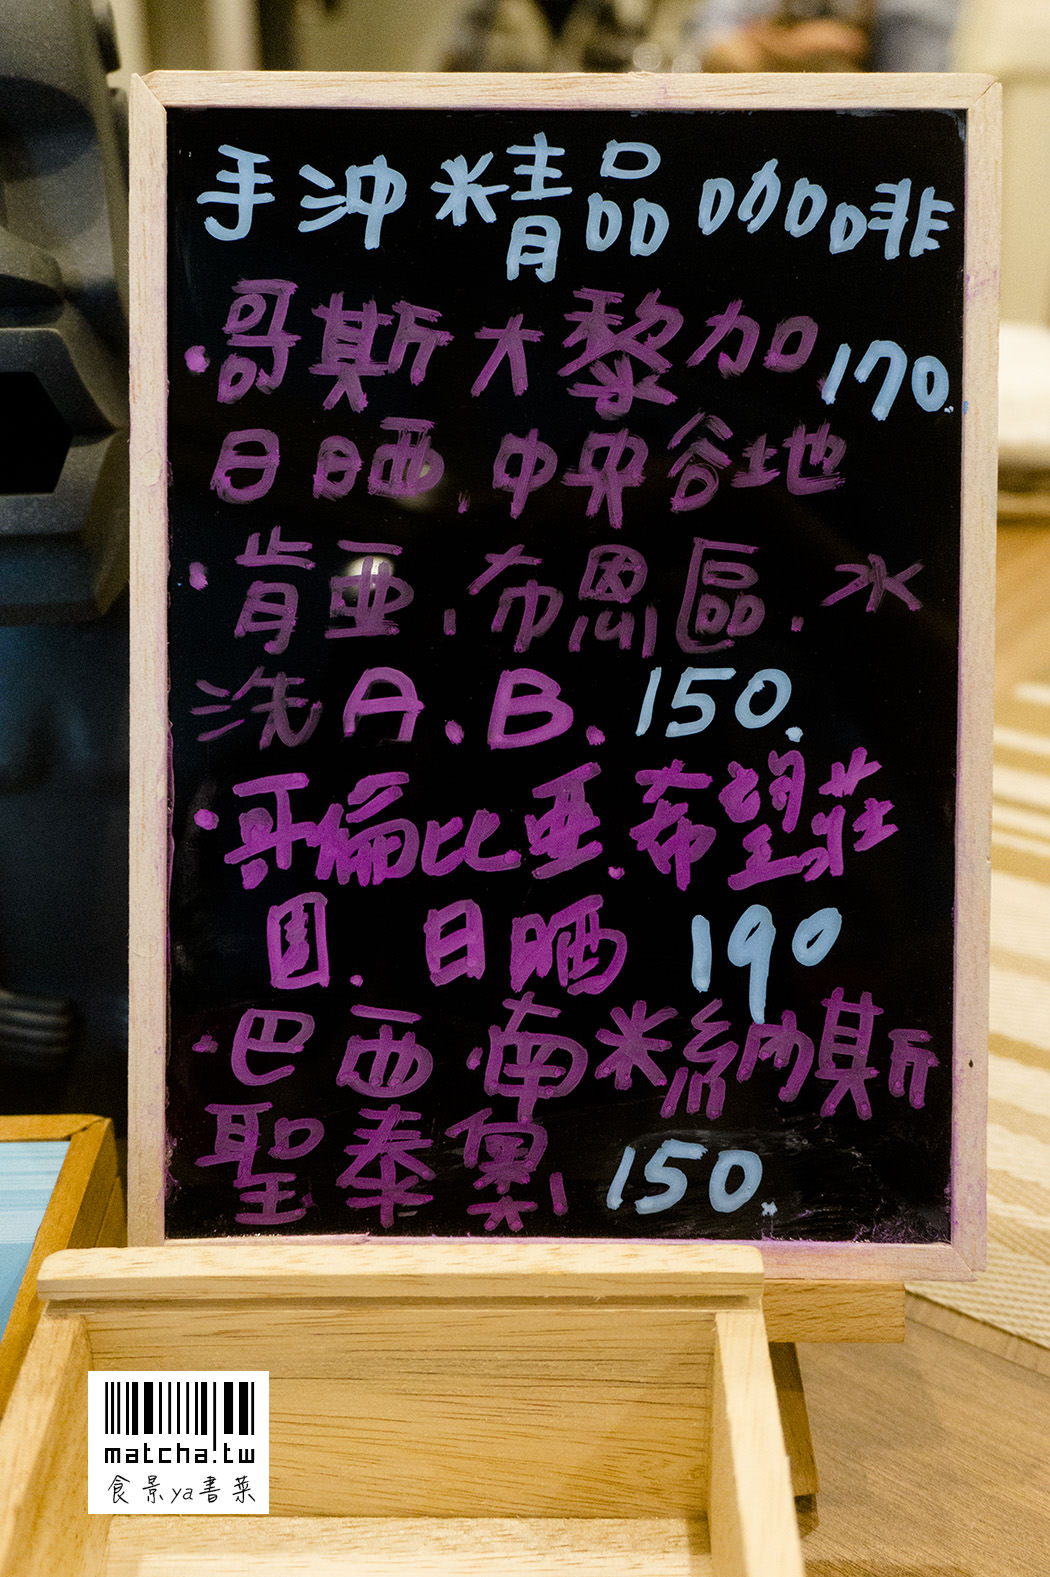 手沖精品咖啡
·哥斯大黎加170.
日晒.中央谷地
·肯亞.布恩區.水
洗A.B.150.
·哥倫比亞.希望莊
園.日晒 190
·巴西.南米納斯
聖泰 150.
matcha.tw
食景ya書菜